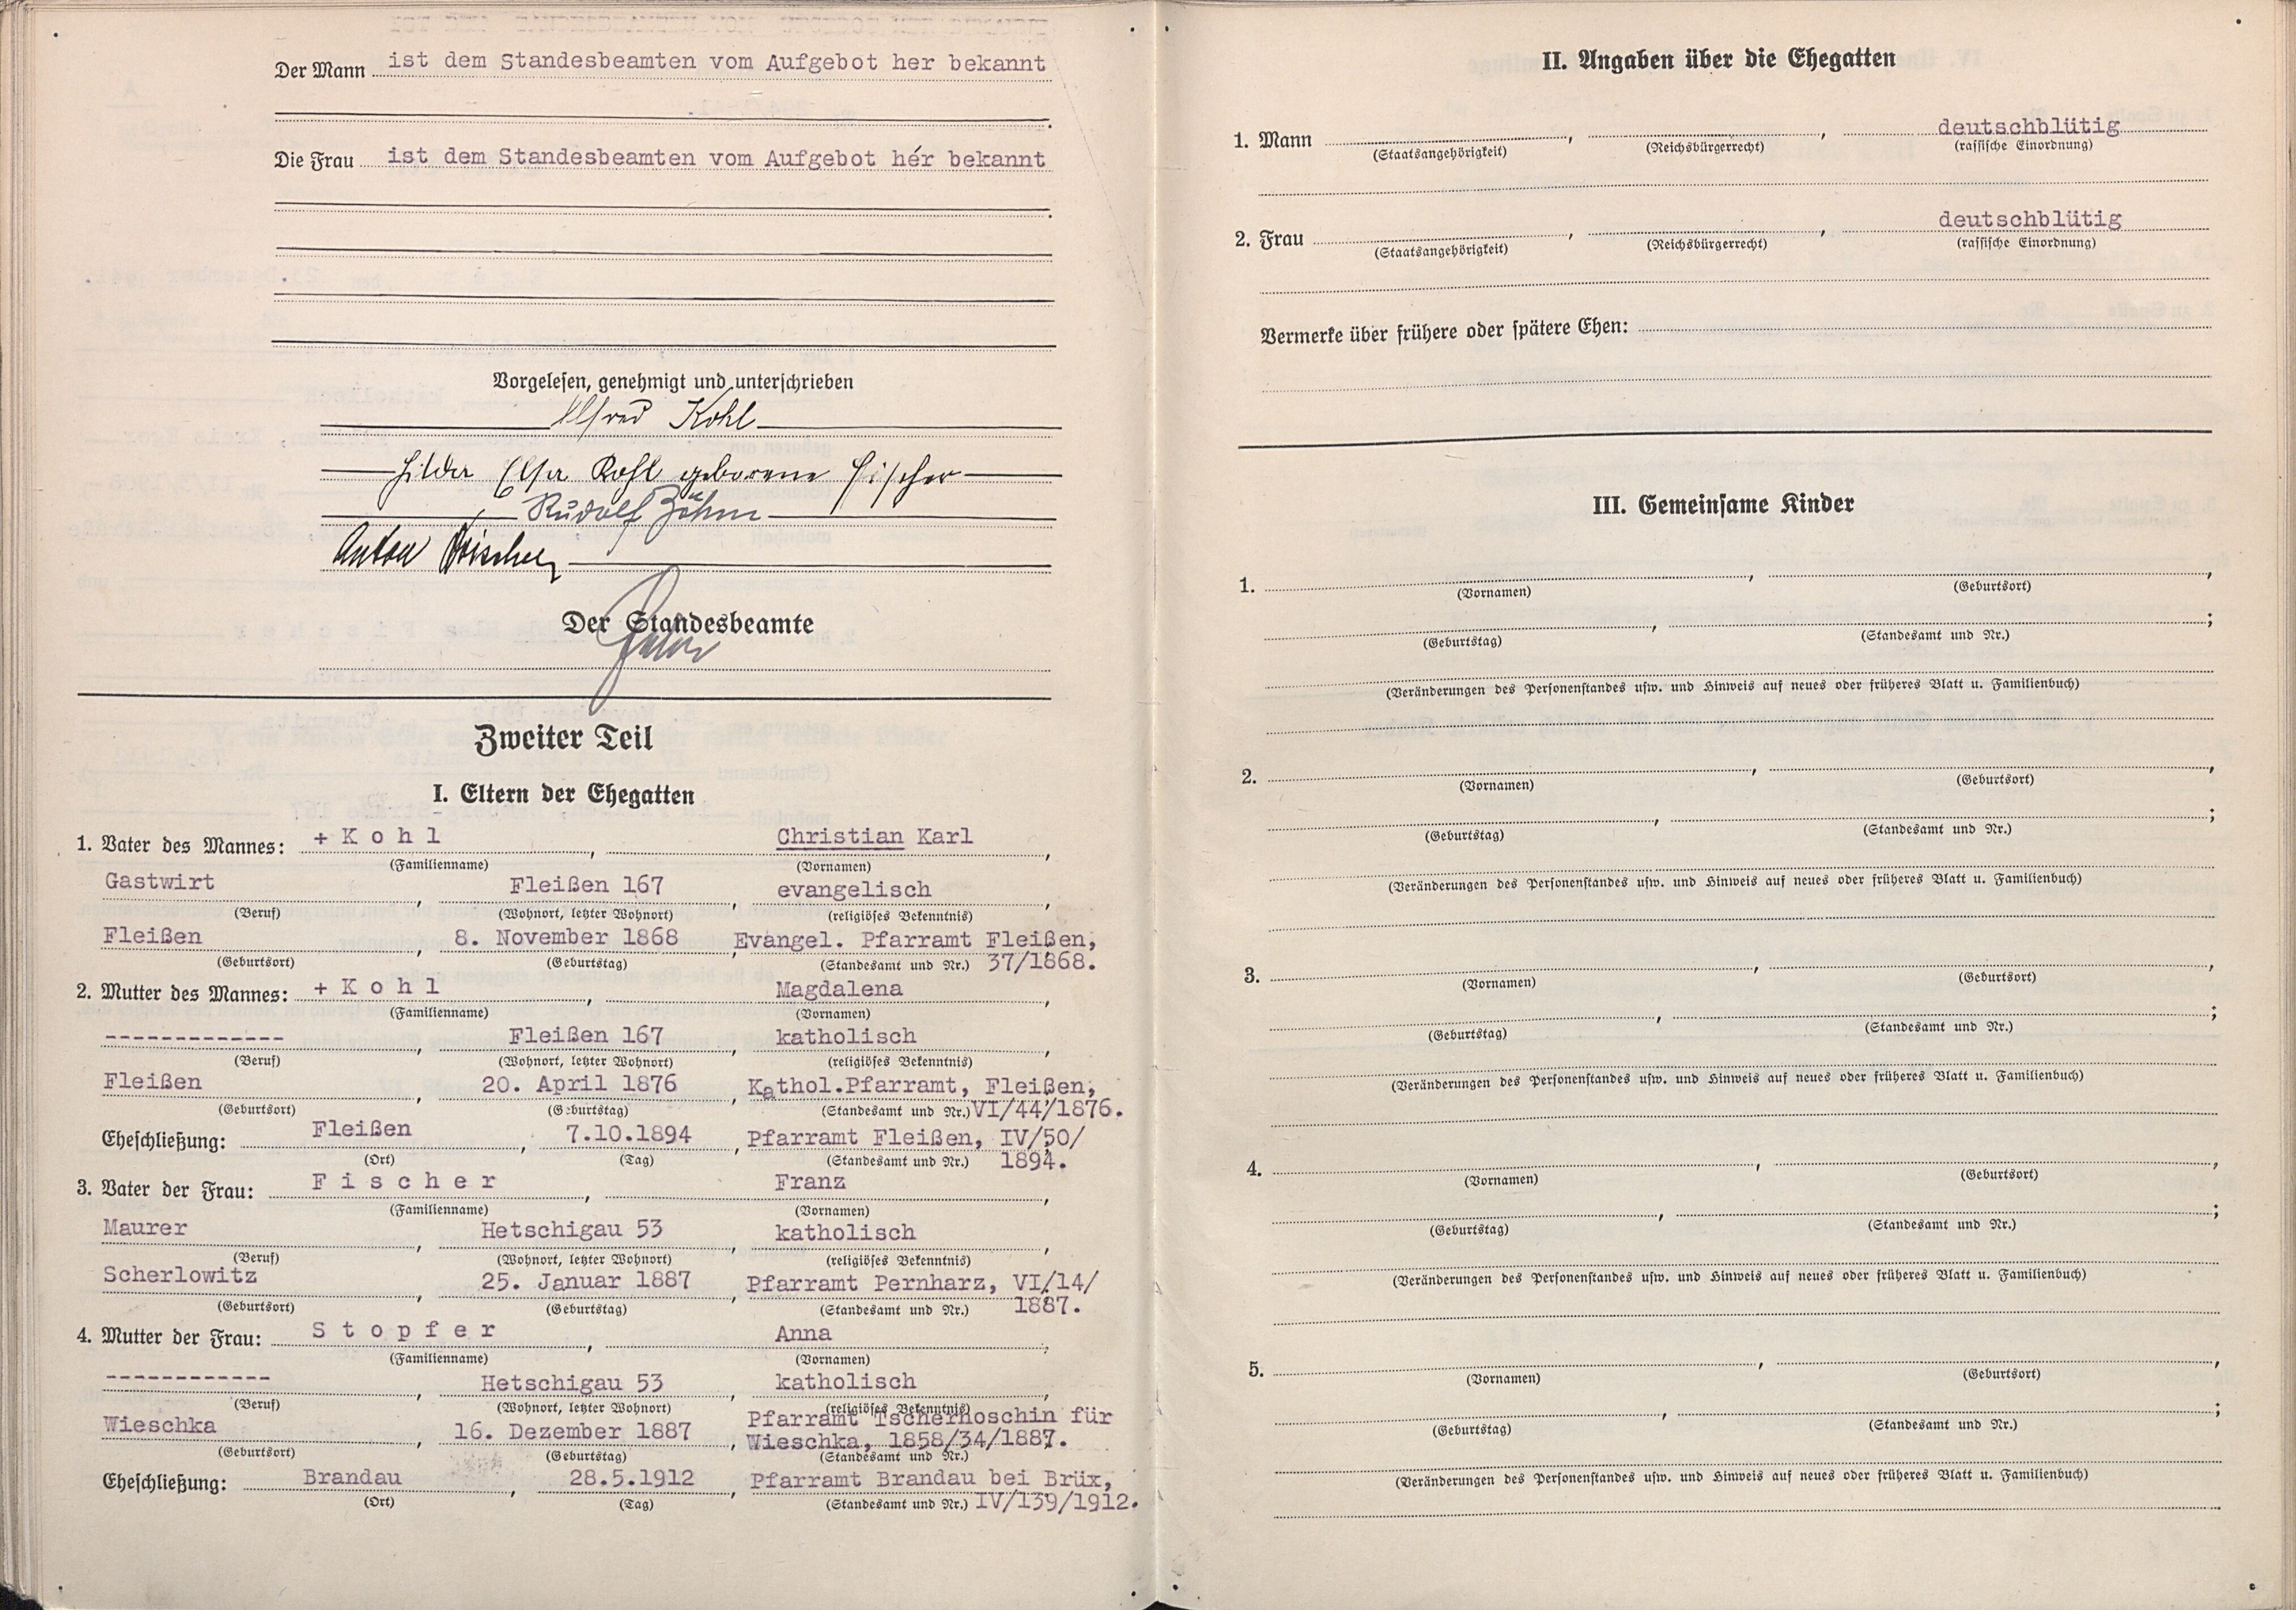 Der Mann ist dem Standesbeamten vom Aufgebot her bekannt
Die Frau ist dem Standesbeamten vom Aufgebot her bekannt
Vorgelesen, genehmigt und unterschrieben
Alfred Kohl
Hilda Elsa Kohl geborene Fischer
Rudolf Böhm
Anton
Der Standesbeamte
Zweiter Teil
I. Eltern der Ehegatten
1. Vater des Mannes: + K o h l , Christian Karl ,
(Familienname) (Vornamen)
Gastwirt , Fleißen 167 , evangelisch ,
(Beruf) (Wohnort, letzter Wohnort) (religiöses Bekenntnis)
Fleißen , 8. November 1868 , Evangel. Pfarramt Fleißen,
(Geburtsort) (Geburtstag) (Standesamt und Nr.) 37/1868.
2. Mutter des Mannes: + K o h l , Magdalena ,
(Familienname) (Vornamen)
------------- , Fleißen 167 , katholisch ,
(Beruf) (Wohnort, letzter Wohnort) (religiöses Bekenntnis)
Fleißen , 20. April 1876 , Kathol.Pfarramt, Fleißen,
(Geburtsort) (Geburtstag) (Standesamt und Nr.) VI/44/1876.
Eheschließung: Fleißen , 7.10.1894 , Pfarramt Fleißen, IV/50/
(Ort) (Tag) (Standesamt und Nr.) 1894.
3. Vater der Frau: F i s c h e r , Franz ,
(Familienname) (Vornamen)
Maurer , Hetschigau 53 , katholisch ,
(Beruf) (Wohnort, letzter Wohnort) (religiöses Bekenntnis)
Scherlowitz , 25. Januar 1887 , Pfarramt Pernharz, VI/14/
(Geburtsort) (Geburtstag) (Standesamt und Nr.) 1887.
4. Mutter der Frau: S t o p f e r , Anna ,
(Familienname) (Vornamen)
------------ , Hetschigau 53 , katholisch ,
(Beruf) (Wohnort, letzter Wohnort) (religiöses Bekenntnis)
Pfarramt Tschernoschin für
Wieschka , 16. Dezember 1887 , Wieschka, 1858/34/1887.
(Geburtsort) (Geburtstag) (Standesamt und Nr.)
Eheschließung: Brandau , 28.5.1912 , Pfarramt Brandau bei Brüx,
(Ort) (Tag) (Standesamt und Nr.) IV/139/1912.
II. Angaben über die Ehegatten
1. Mann , , deutschblütig
(Staatsangehörigkeit) (Reichsbürgerrecht) (rassische Einordnung)
2. Frau , , deutschblütig
(Staatsangehörigkeit) (Reichsbürgerrecht) (rassische Einordnung)
Vermerke über frühere oder spätere Ehen:
III. Gemeinsame Kinder
1. , ,
(Vornamen) (Geburtsort)
, ;
(Geburtstag) (Standesamt und Nr.)
(Veränderungen des Personenstandes usw. und Hinweis auf neues oder früheres Blatt u. Familienbuch)
2. , ,
(Vornamen) (Geburtsort)
, ;
(Geburtstag) (Standesamt und Nr.)
(Veränderungen des Personenstandes usw. und Hinweis auf neues oder früheres Blatt u. Familienbuch)
3. , ,
(Vornamen) (Geburtsort)
, ;
(Geburtstag) (Standesamt und Nr.)
(Veränderungen des Personenstandes usw. und Hinweis auf neues oder früheres Blatt u. Familienbuch)
4. , ,
(Vornamen) (Geburtsort)
, ;
(Geburtstag) (Standesamt und Nr.)
(Veränderungen des Personenstandes usw. und Hinweis auf neues oder früheres Blatt u. Familienbuch)
5. , ,
(Vornamen) (Geburtsort)
, ;
(Geburtstag) (Standesamt und Nr.)
(Veränderungen des Personenstandes usw. und Hinweis auf neues oder früheres Blatt u. Familienbuch)